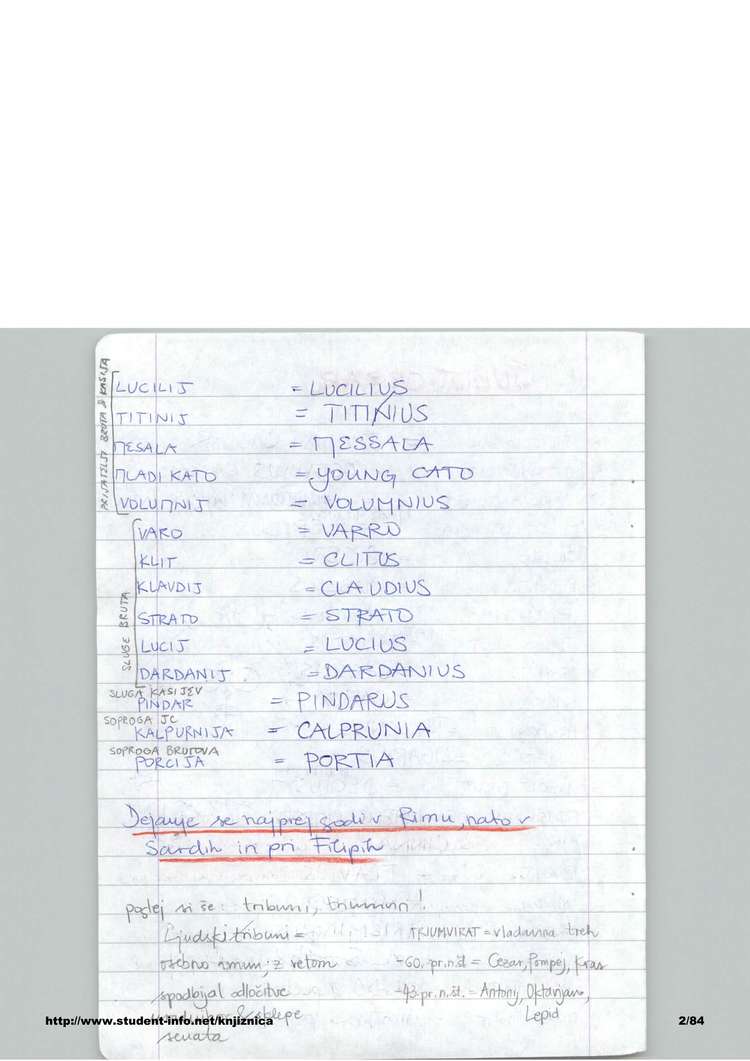 PRIJATELJI BRUTA & KASIJA
LUCILIJ = LUCILIUS
TITINIJ = TITINIUS
MESALA = MESSALA
MLADI KATO = YOUNG CATO
VOLUMNIJ = VOLUMNIUS
SLUGE BRUTA
VARO = VARRO
KLIT = CLITUS
KLAVDIJ = CLAUDIUS
STRATO = STRATO
LUCIJ = LUCIUS
DARDANIJ = DARDANIUS
SLUGA KASIJEV
PINDAR = PINDARUS
SOPROGA JC
KALPURNIJA = CALPRUNIA
SOPROGA BRUTOVA
PORCIJA = PORTIA
Dejanje se najprej godi v Rimu, nato v
Sardih in pri Filipih
poglej si še: tribuni, triumviri!
Ljudski tribuni = TRIUMVIRAT = vladavina treh
osebno imuni; z vetom -60. pr.n.št = Cezar, Pompej, Kras
spodbijal odločitve -43. pr.n.št. = Antonij, Oktavijan,
& sklepe Lepid
senata
http://www.student-info.net/knjiznica 2/84